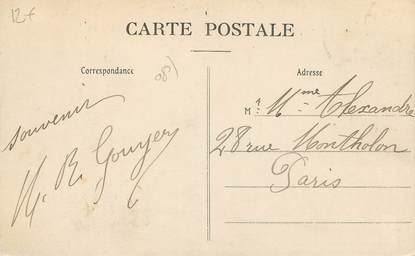 12 f
CARTE POSTALE
Correspondance
08)
Adresse
souvenir
M. R. Gouyer
M^r. M^me Alexandre
28 rue Montholon
Paris